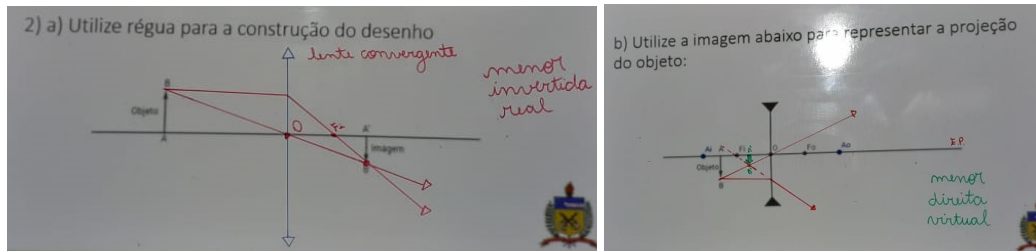 2) a) Utilize régua para a construção do desenho
lente convergente
menor
invertida
real
B
Objeto
O
A'
A
Imagem
B
b) Utilize a imagem abaixo para representar a projeção
do objeto:
E.P.
Ai
Fi
O
Fo
Ao
Objeto
B
menor
direita
virtual